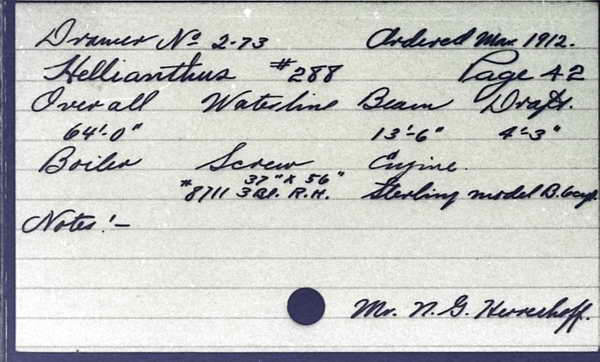 Drawer No 2-73 Ordered Mar. 1912.
Hellianthus #288 Page 42
Over all Waterline Beam Draft.
64'-0" 13'-6" 4'-3"
Boiler Screw Engine.
#8711 37" x 56" 3 Bl. R.H. Sterling model B. 6 cyl.
Notes:-
Mr. N. G. Herreshoff.